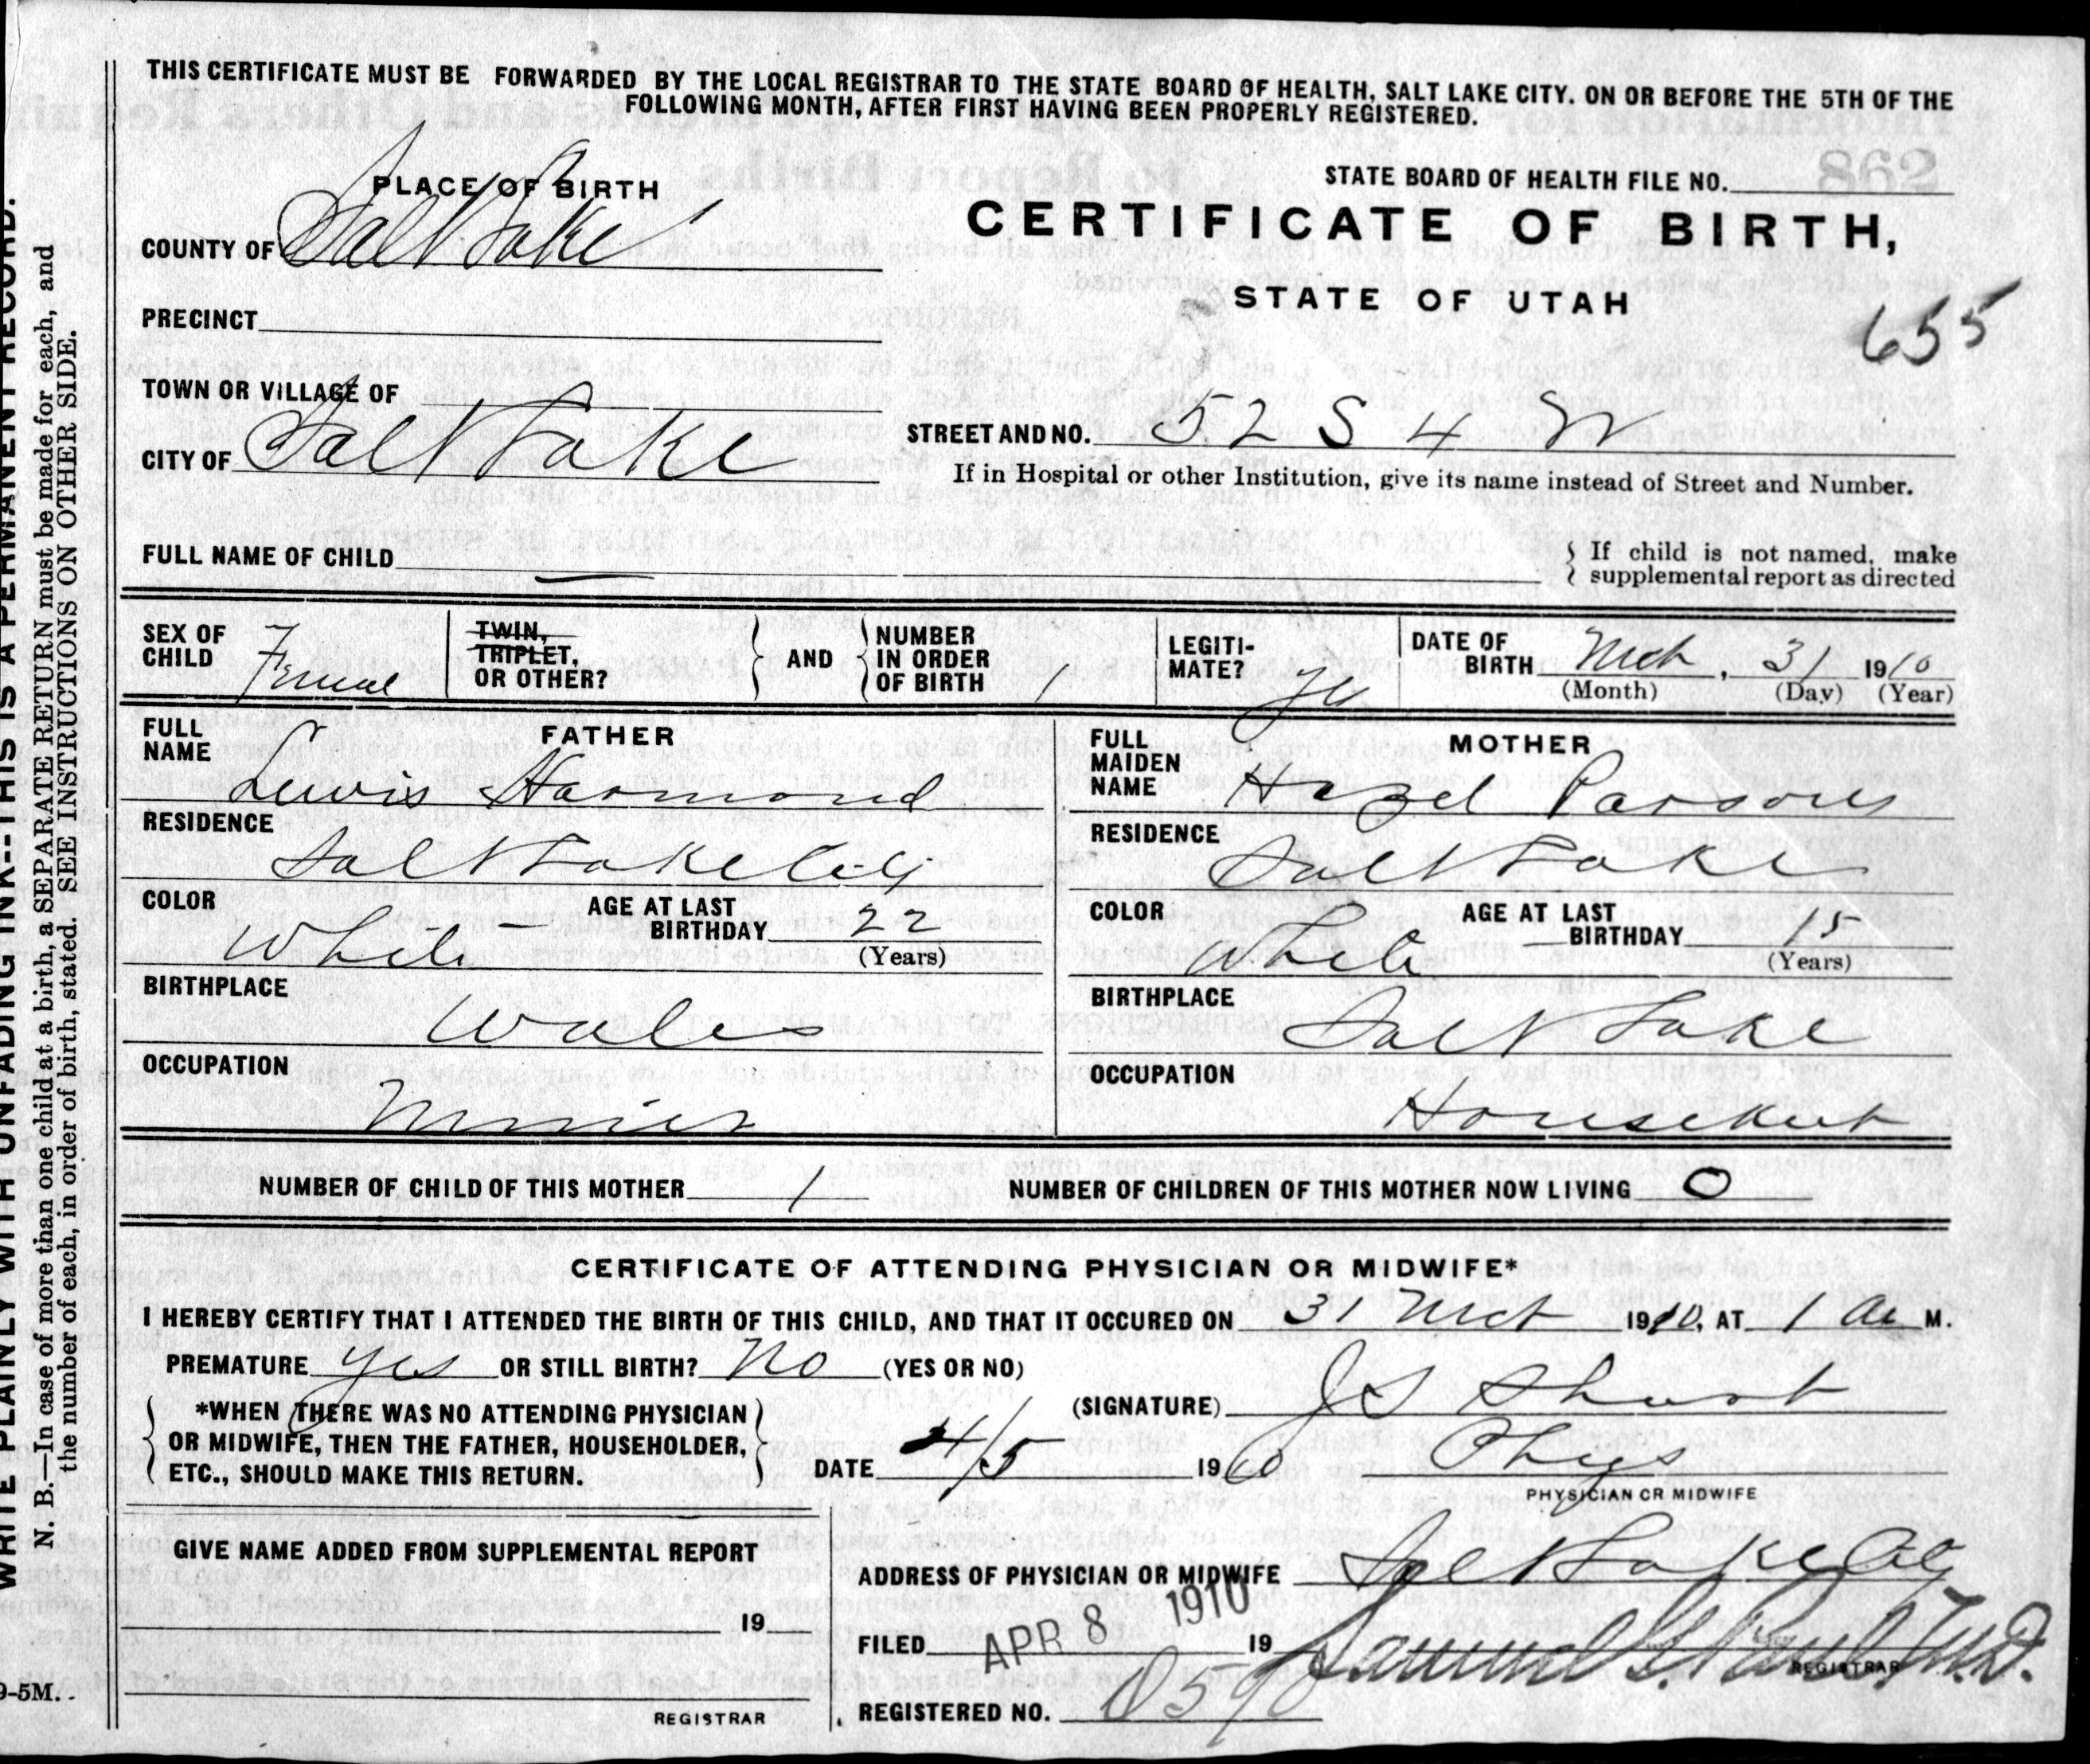 THIS CERTIFICATE MUST BE FORWARDED BY THE LOCAL REGISTRAR TO THE STATE BOARD OF HEALTH, SALT LAKE CITY. ON OR BEFORE THE 5TH OF THE
FOLLOWING MONTH, AFTER FIRST HAVING BEEN PROPERLY REGISTERED.
PLACE OF BIRTH
COUNTY OF Salt Lake
PRECINCT
TOWN OR VILLAGE OF
CITY OF Salt Lake
STATE BOARD OF HEALTH FILE NO.
862
CERTIFICATE OF BIRTH,
STATE OF UTAH
655
STREET AND NO. 52 S 4 W
If in Hospital or other Institution, give its name instead of Street and Number.
FULL NAME OF CHILD —
If child is not named, make
supplemental report as directed
SEX OF CHILD Female
TWIN, TRIPLET, OR OTHER?
AND
NUMBER IN ORDER OF BIRTH 1
LEGITI-MATE? yes
DATE OF BIRTH Mch, 31 1910
(Month) (Day) (Year)
FATHER
FULL NAME Lewis Harmond
RESIDENCE Salt Lake City
COLOR White
AGE AT LAST BIRTHDAY 22
(Years)
BIRTHPLACE Wales
OCCUPATION Miner
MOTHER
FULL MAIDEN NAME Hazel Parsons
RESIDENCE Salt Lake
COLOR White
AGE AT LAST BIRTHDAY 15
(Years)
BIRTHPLACE Salt Lake
OCCUPATION Housekept
NUMBER OF CHILD OF THIS MOTHER 1
NUMBER OF CHILDREN OF THIS MOTHER NOW LIVING 0
CERTIFICATE OF ATTENDING PHYSICIAN OR MIDWIFE*
I HEREBY CERTIFY THAT I ATTENDED THE BIRTH OF THIS CHILD, AND THAT IT OCCURED ON 31 Mch 1910, AT 1 A M.
PREMATURE yes OR STILL BIRTH? No (YES OR NO)
*WHEN THERE WAS NO ATTENDING PHYSICIAN
OR MIDWIFE, THEN THE FATHER, HOUSEHOLDER,
ETC., SHOULD MAKE THIS RETURN.
(SIGNATURE) J S Short
DATE 4/5 1910
Phys
PHYSICIAN OR MIDWIFE
GIVE NAME ADDED FROM SUPPLEMENTAL REPORT
19
REGISTRAR
ADDRESS OF PHYSICIAN OR MIDWIFE Salt Lake City
FILED APR 8 1910 19
Samuel G. Paul, M.D.
REGISTRAR
REGISTERED NO.
WRITE PLAINLY WITH UNFADING INK--THIS IS A PERMANENT RECORD.
N. B.—In case of more than one child at a birth, a SEPARATE RETURN must be made for each, and
the number of each, in order of birth, stated. SEE INSTRUCTIONS ON OTHER SIDE.
9-5M.